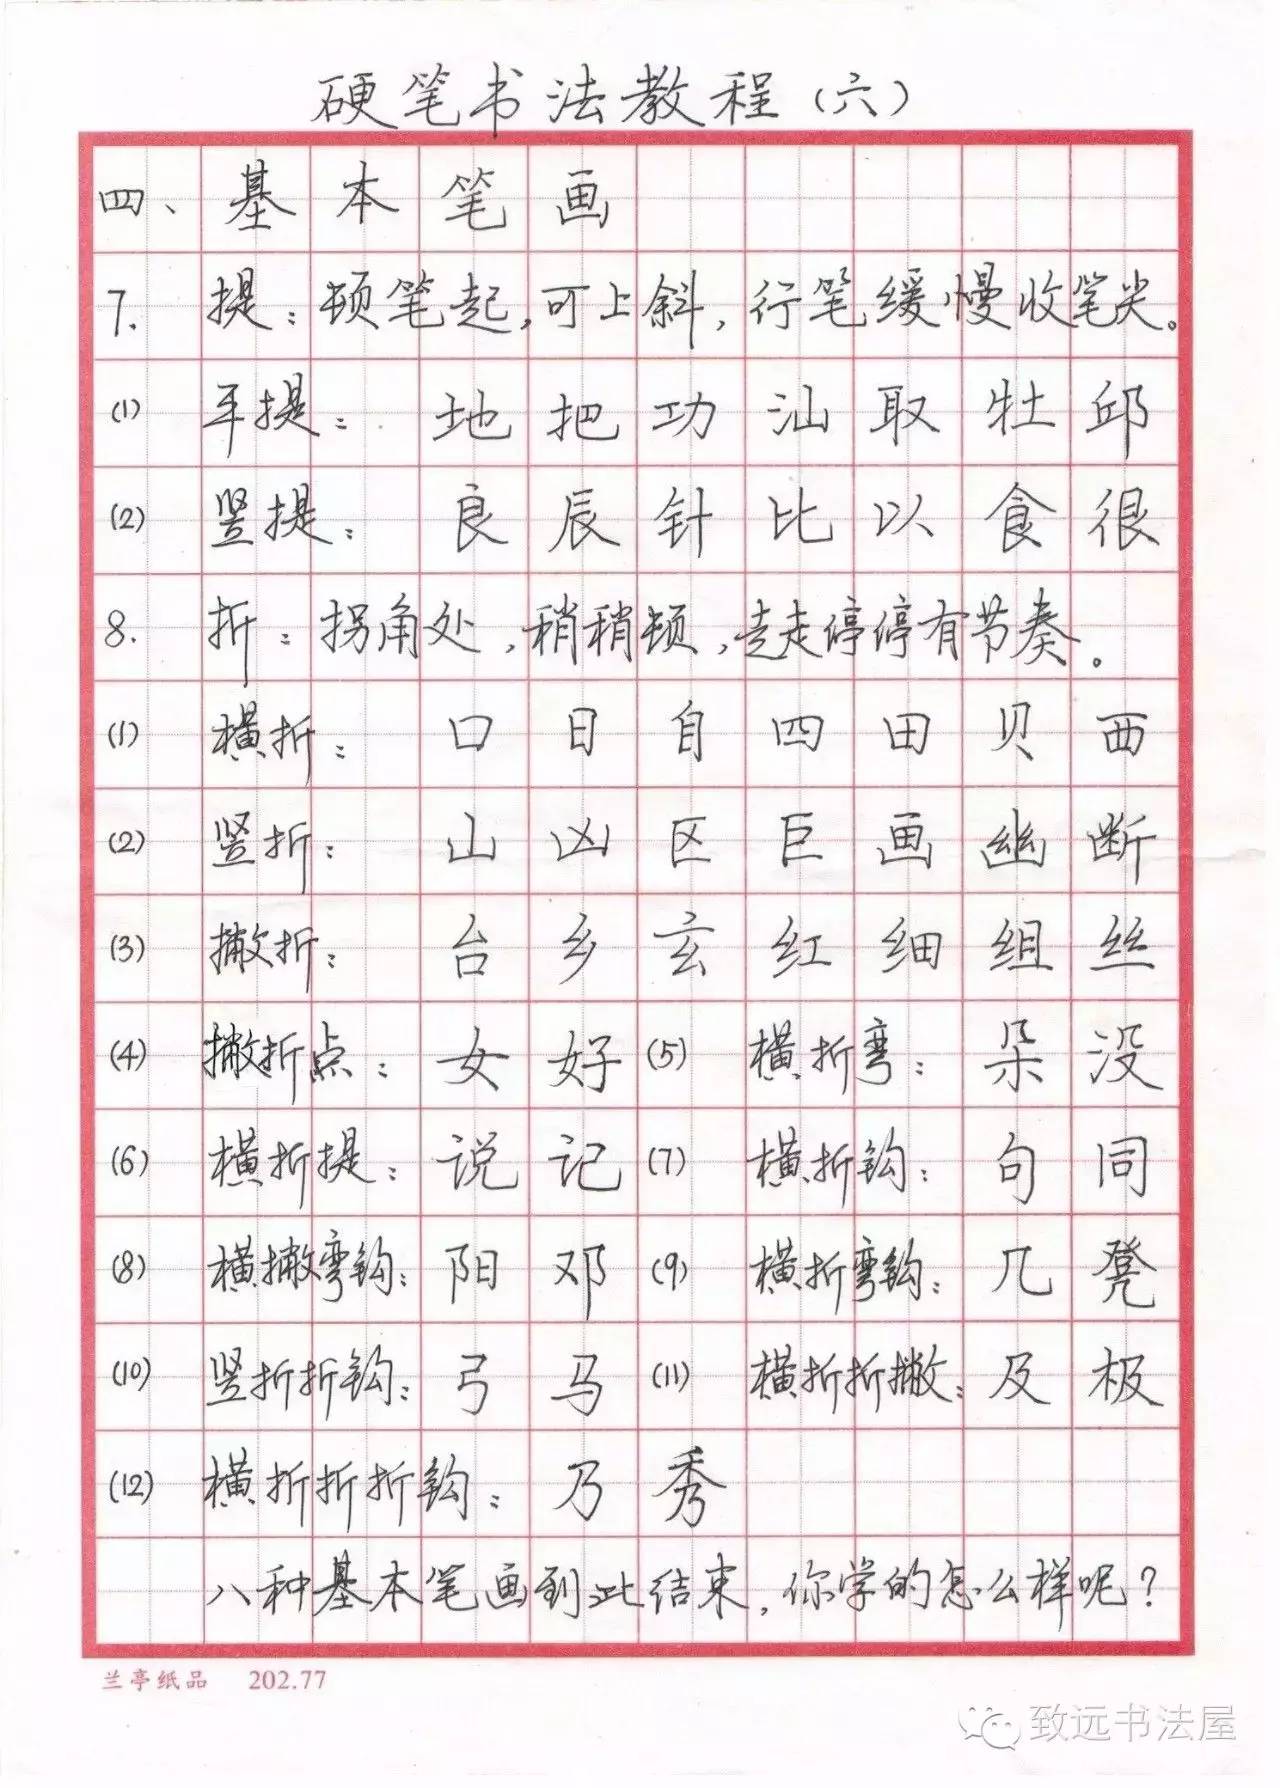 硬笔书法教程(六)
四、基本笔画
7. 提:顿笔起,可上斜,行笔缓慢收笔尖。
(1) 平提: 地把功汕取牡邱
(2) 竖提: 良辰针比以食很
8. 折:拐角处,稍稍顿,走走停停有节奏。
(1) 横折: 口日自四田贝西
(2) 竖折: 山凶区巨画幽断
(3) 撇折: 台乡玄红细组丝
(4) 撇折点: 女好 (5) 横折弯: 朵没
(6) 横折提: 说记 (7) 横折钩: 句同
(8) 横撇弯钩: 阳邓 (9) 横折弯钩: 几凳
(10) 竖折折钩: 弓马 (11) 横折折撇: 及极
(12) 横折折折钩: 乃秀
八种基本笔画到此结束,你学的怎么样呢?
兰亭纸品 202.77
致远书法屋